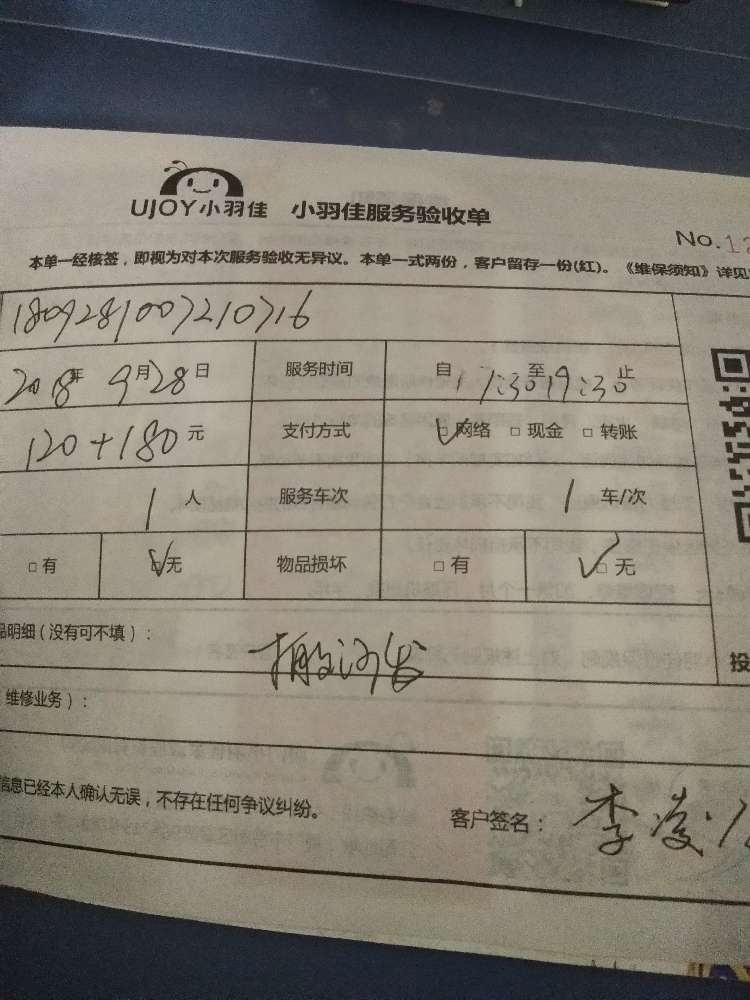 UJOY小羽佳 小羽佳服务验收单
No.12
本单一经核签，即视为对本次服务验收无异议。本单一式两份，客户留存一份(红)。《维保须知》详见
1809281007210716
2018年 9月28日 服务时间 自17:30至19:30止
120+180元 支付方式 □网络 □现金 □转账
1人 服务车次 1车/次
□有 □无 物品损坏 □有 □无
品明细（没有可不填）：
搬沙发
维修业务）：
信息已经本人确认无误，不存在任何争议纠纷。
客户签名：李凌
投